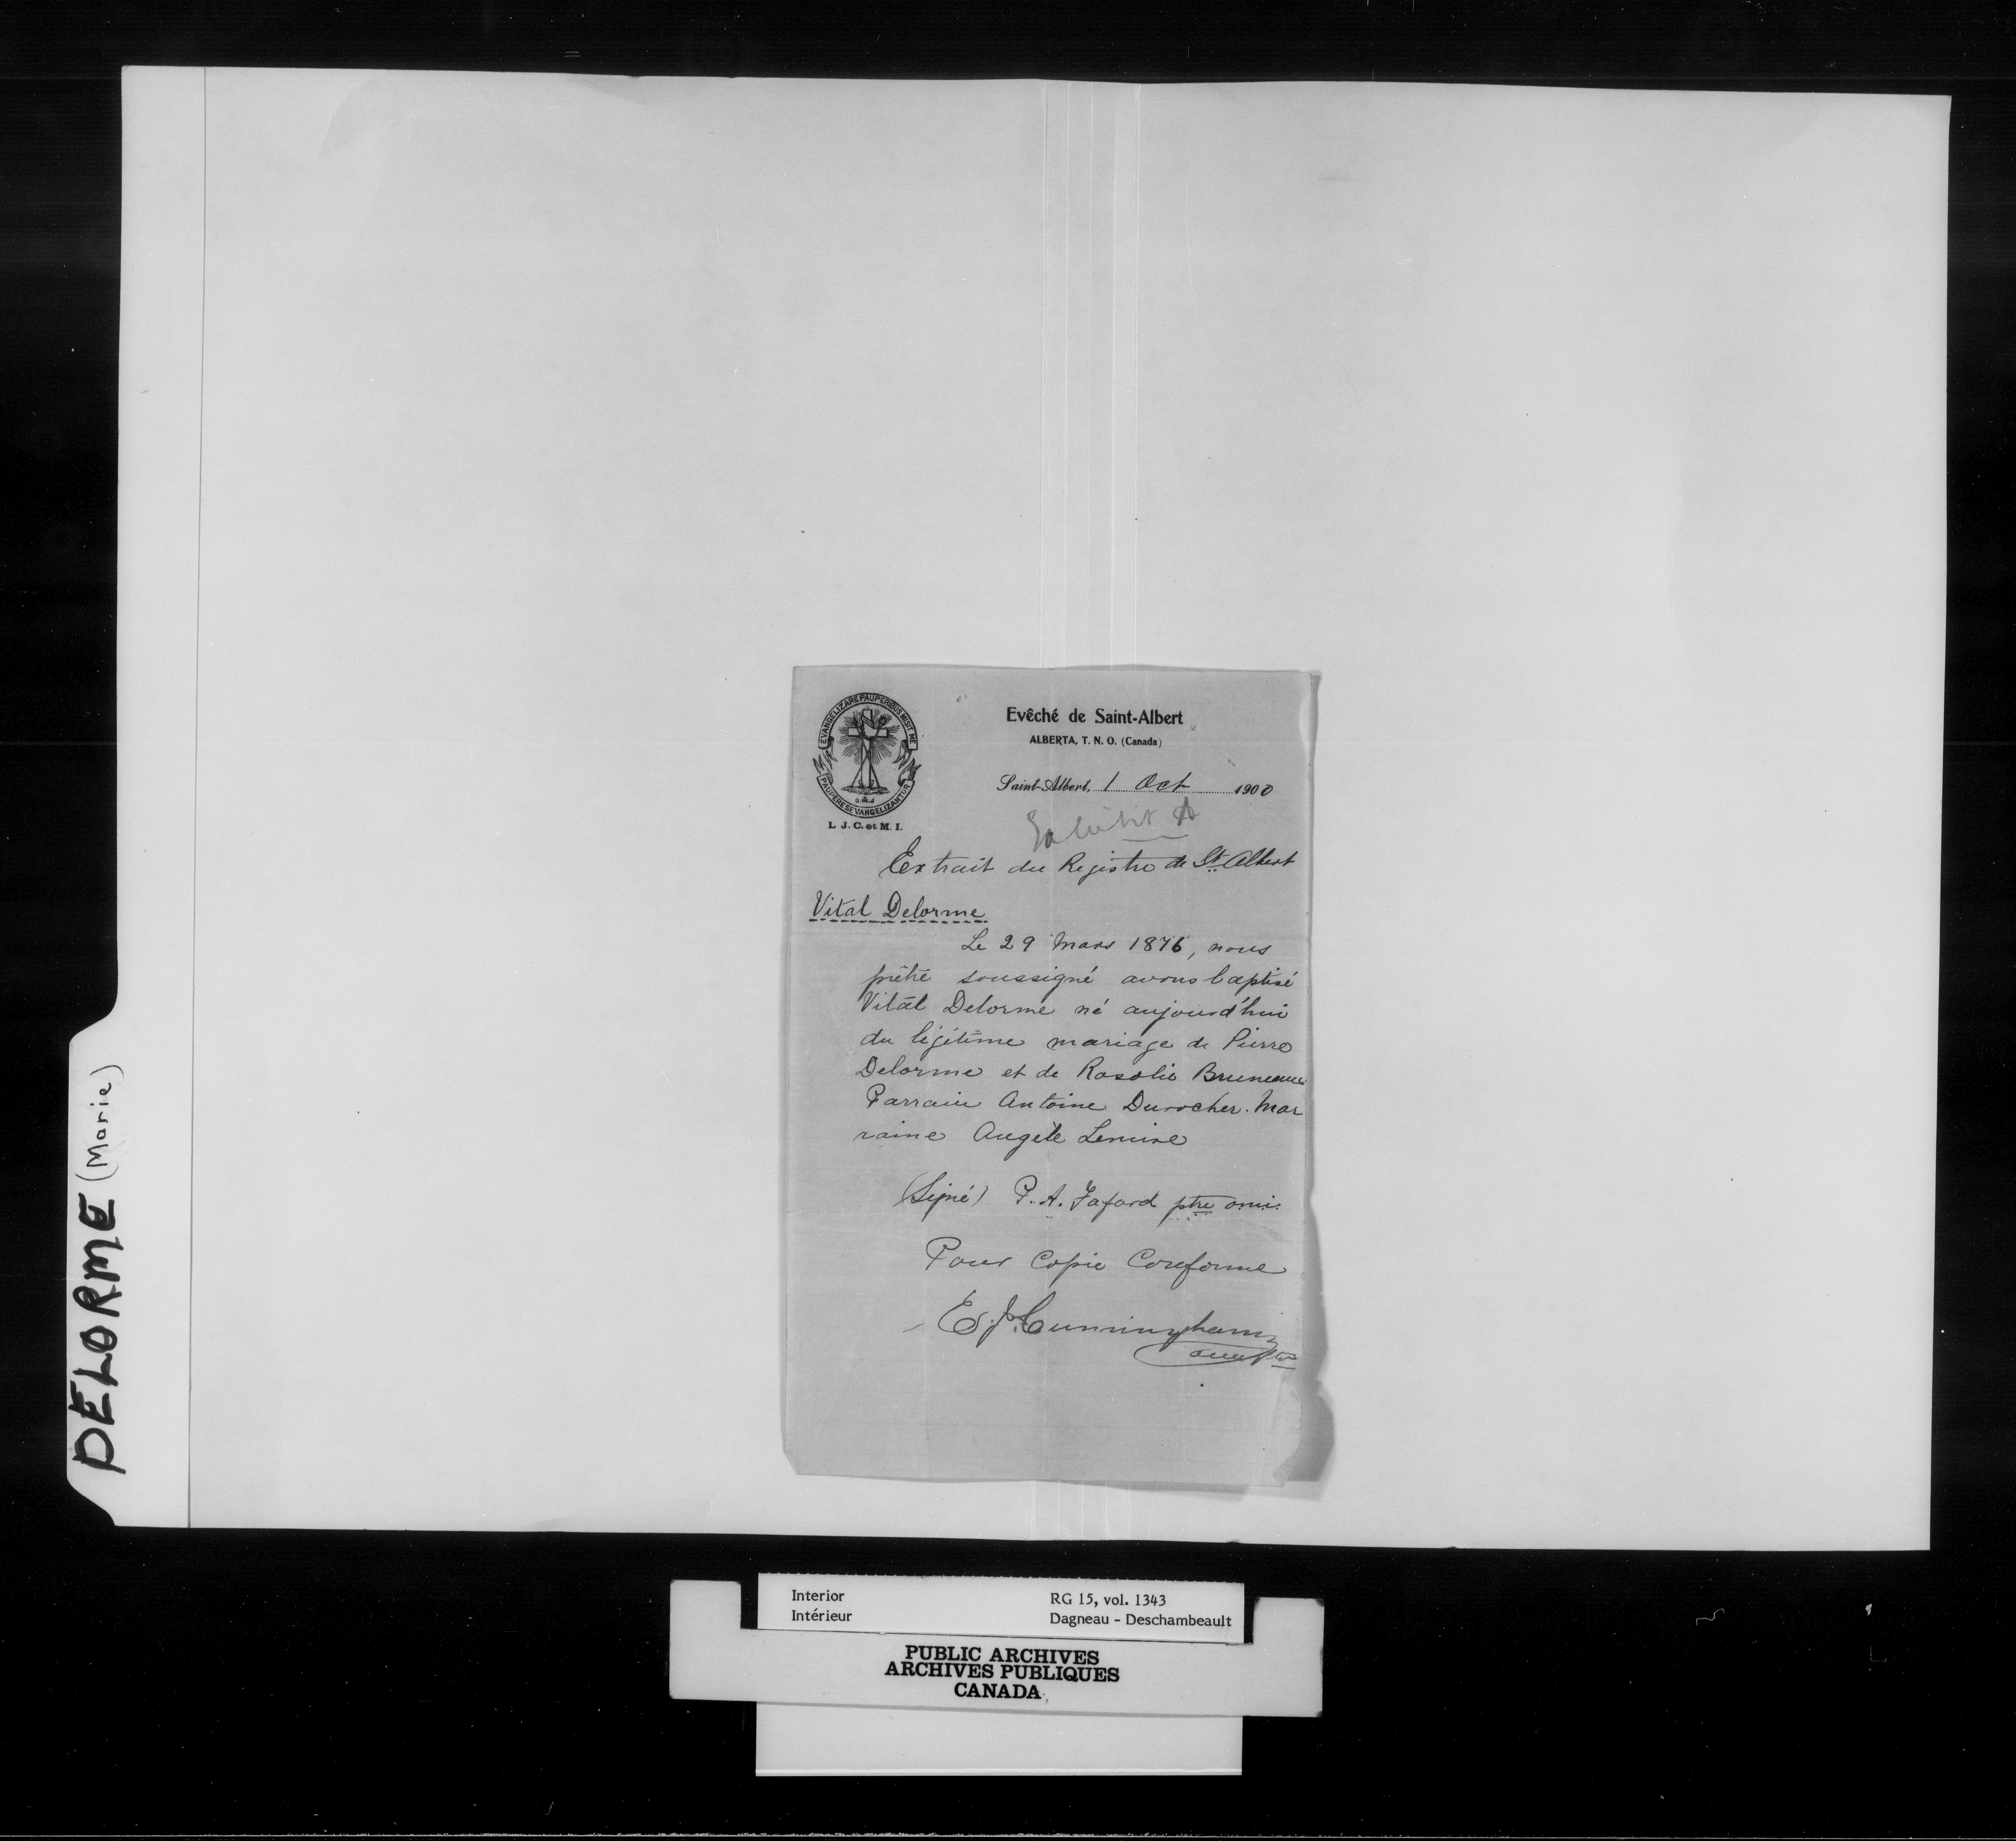 DELORME (Marie)
EVANGELIZARE PAUPERIBUS MISIT ME
PAUPERES EVANGELIZANTUR
O.M.J
L. J. C. et M. I.
Evêché de Saint-Albert
ALBERTA, T. N. O. (Canada)
Saint-Albert, 1 Oct 1900
Exhibit A
Extrait du Registre de St. Albert
Vital Delorme
Le 29 Mars 1876, nous
prêtre soussigné avons baptisé
Vital Delorme né aujourd'hui
du légitime mariage de Pierre
Delorme et de Rosalie Bruneau
Parrain Antoine Durocher. Mar
raine Angèle Lemire
(Signé) P. A. Fafard ptre omi.
Pour Copie Conforme
E. J. Cunningham
omi ptre
Interior
Intérieur
RG 15, vol. 1343
Dagneau - Deschambeault
PUBLIC ARCHIVES
ARCHIVES PUBLIQUES
CANADA